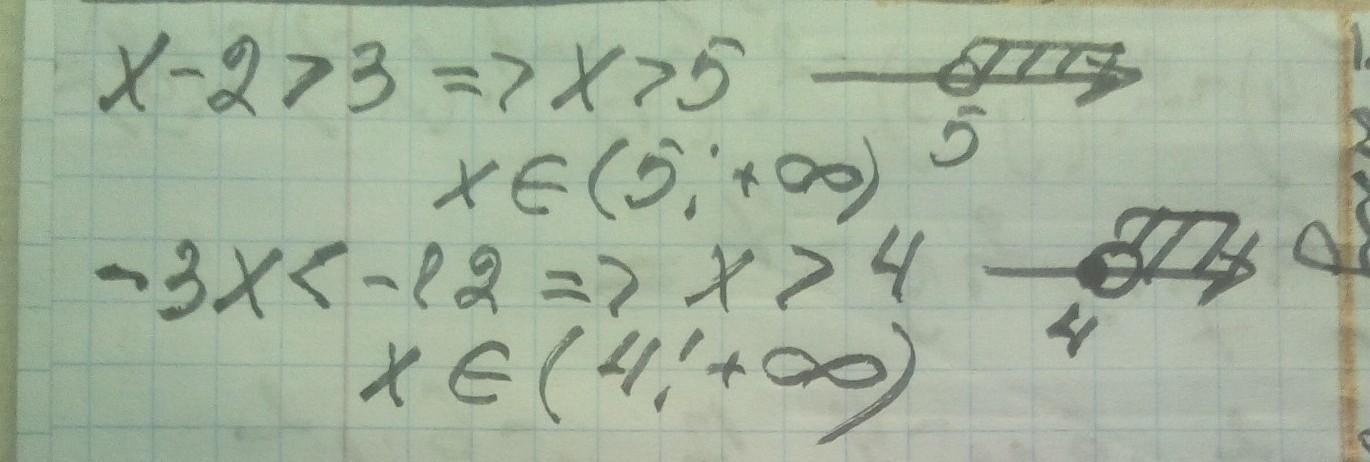 x-2>3 => x>5
5
x∈(5;+∞)
-3x<-12 => x>4
4
x∈(4;+∞)